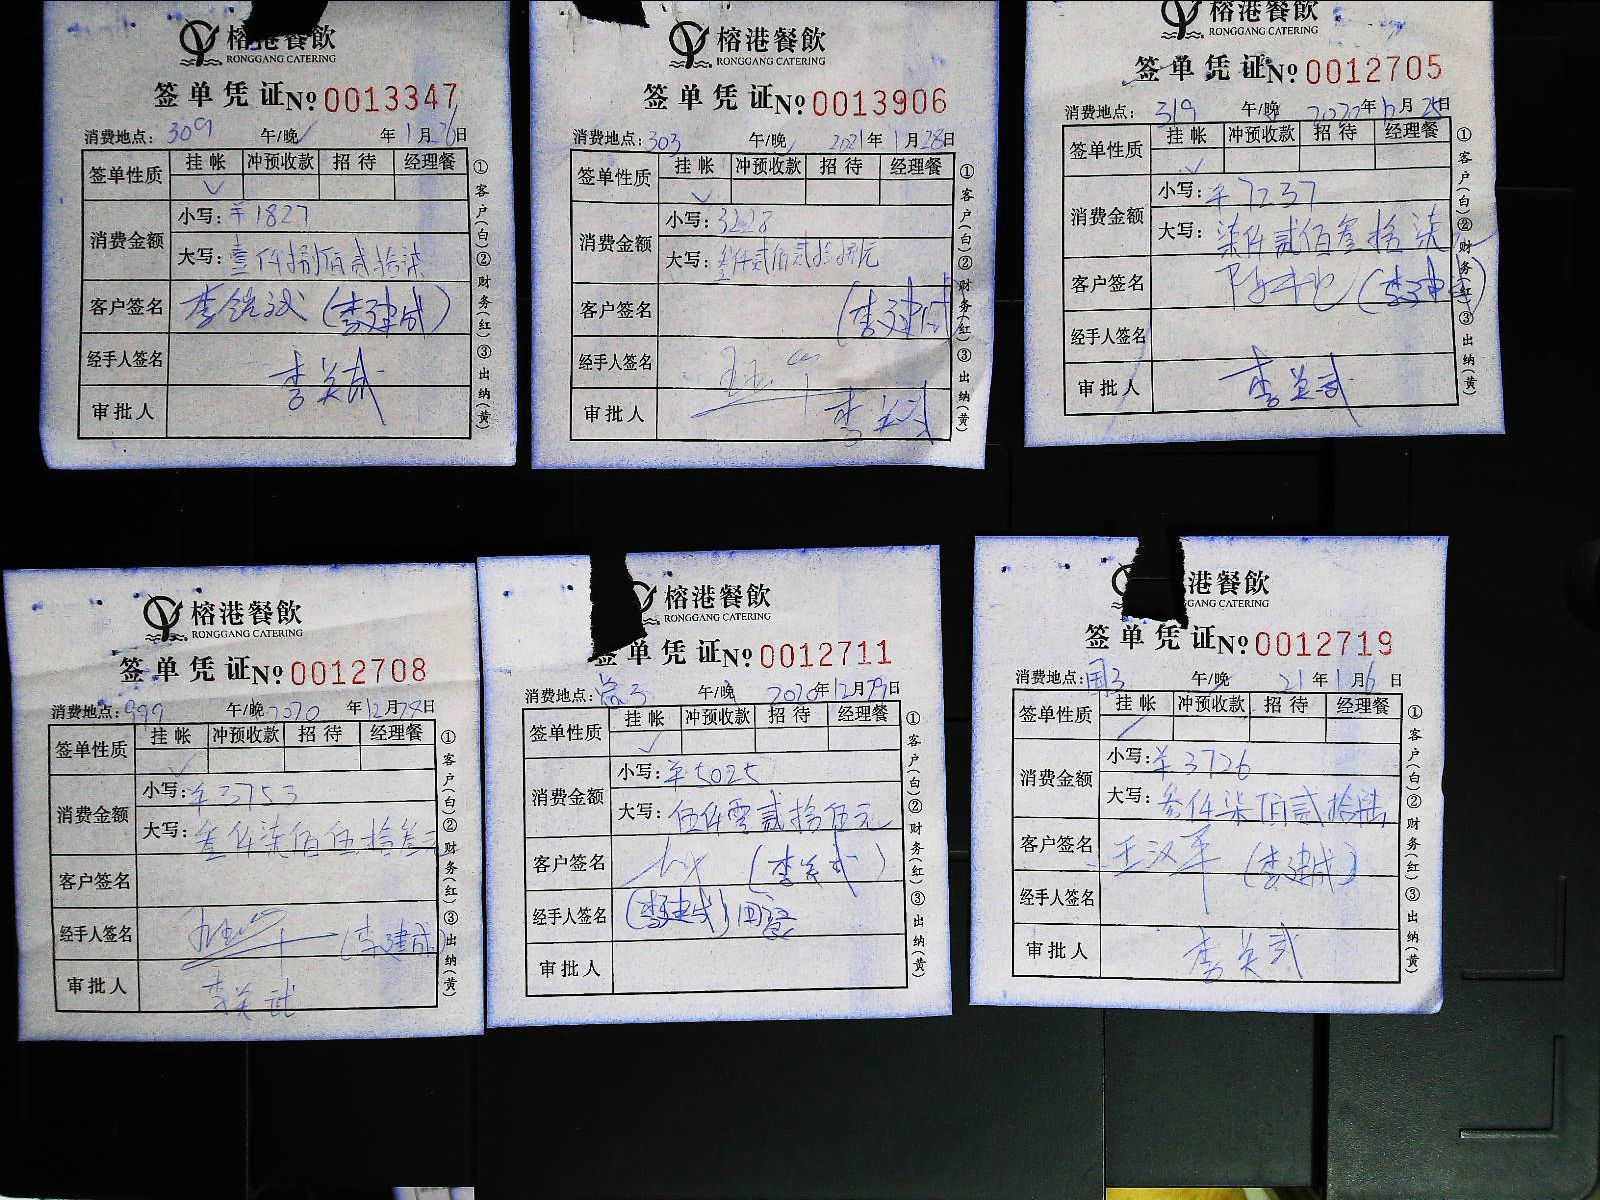 榕港餐飲
RONGGANG CATERING
签单凭证 No 0013347
消费地点: 309 午/晚 年 1月26日
签单性质 挂帐 冲预收款 招待 经理餐
消费金额 小写: ￥1827
大写: 壹仟捌佰贰拾柒
客户签名 (李建成)
经手人签名
审批人 李关武
①客户(白)②财务(红)③出纳(黄)
榕港餐飲
RONGGANG CATERING
签单凭证 No 0013906
消费地点: 303 午/晚 2021年 1月28日
签单性质 挂帐 冲预收款 招待 经理餐
消费金额 小写: 3228
大写: 叁仟贰佰贰拾捌元
客户签名 (李建成)
经手人签名
审批人 李关武
①客户(白)②财务(红)③出纳(黄)
榕港餐飲
RONGGANG CATERING
签单凭证 No 0012705
消费地点: 319 午/晚 2020年 月25日
签单性质 挂帐 冲预收款 招待 经理餐
消费金额 小写: ￥7237
大写: 柒仟贰佰叁拾柒
客户签名 (李建成)
经手人签名
审批人 李关武
①客户(白)②财务(红)③出纳(黄)
榕港餐飲
RONGGANG CATERING
签单凭证 No 0012708
消费地点: 999 午/晚 2020年12月28日
签单性质 挂帐 冲预收款 招待 经理餐
消费金额 小写: ￥3753
大写: 叁仟柒佰伍拾叁元
客户签名
经手人签名 (李建成)
审批人 李关武
①客户(白)②财务(红)③出纳(黄)
榕港餐飲
RONGGANG CATERING
签单凭证 No 0012711
消费地点: 午/晚 2020年12月29日
签单性质 挂帐 冲预收款 招待 经理餐
消费金额 小写: ￥5025
大写: 伍仟零贰拾伍元
客户签名 (李关武)
经手人签名 (李建成)
审批人
①客户(白)②财务(红)③出纳(黄)
榕港餐飲
GGANG CATERING
签单凭证 No 0012719
消费地点: 国3 午/晚 21年1月6日
签单性质 挂帐 冲预收款 招待 经理餐
消费金额 小写: ￥3726
大写: 叁仟柒佰贰拾陆
客户签名 王汉军 (李建成)
经手人签名
审批人 李关武
①客户(白)②财务(红)③出纳(黄)